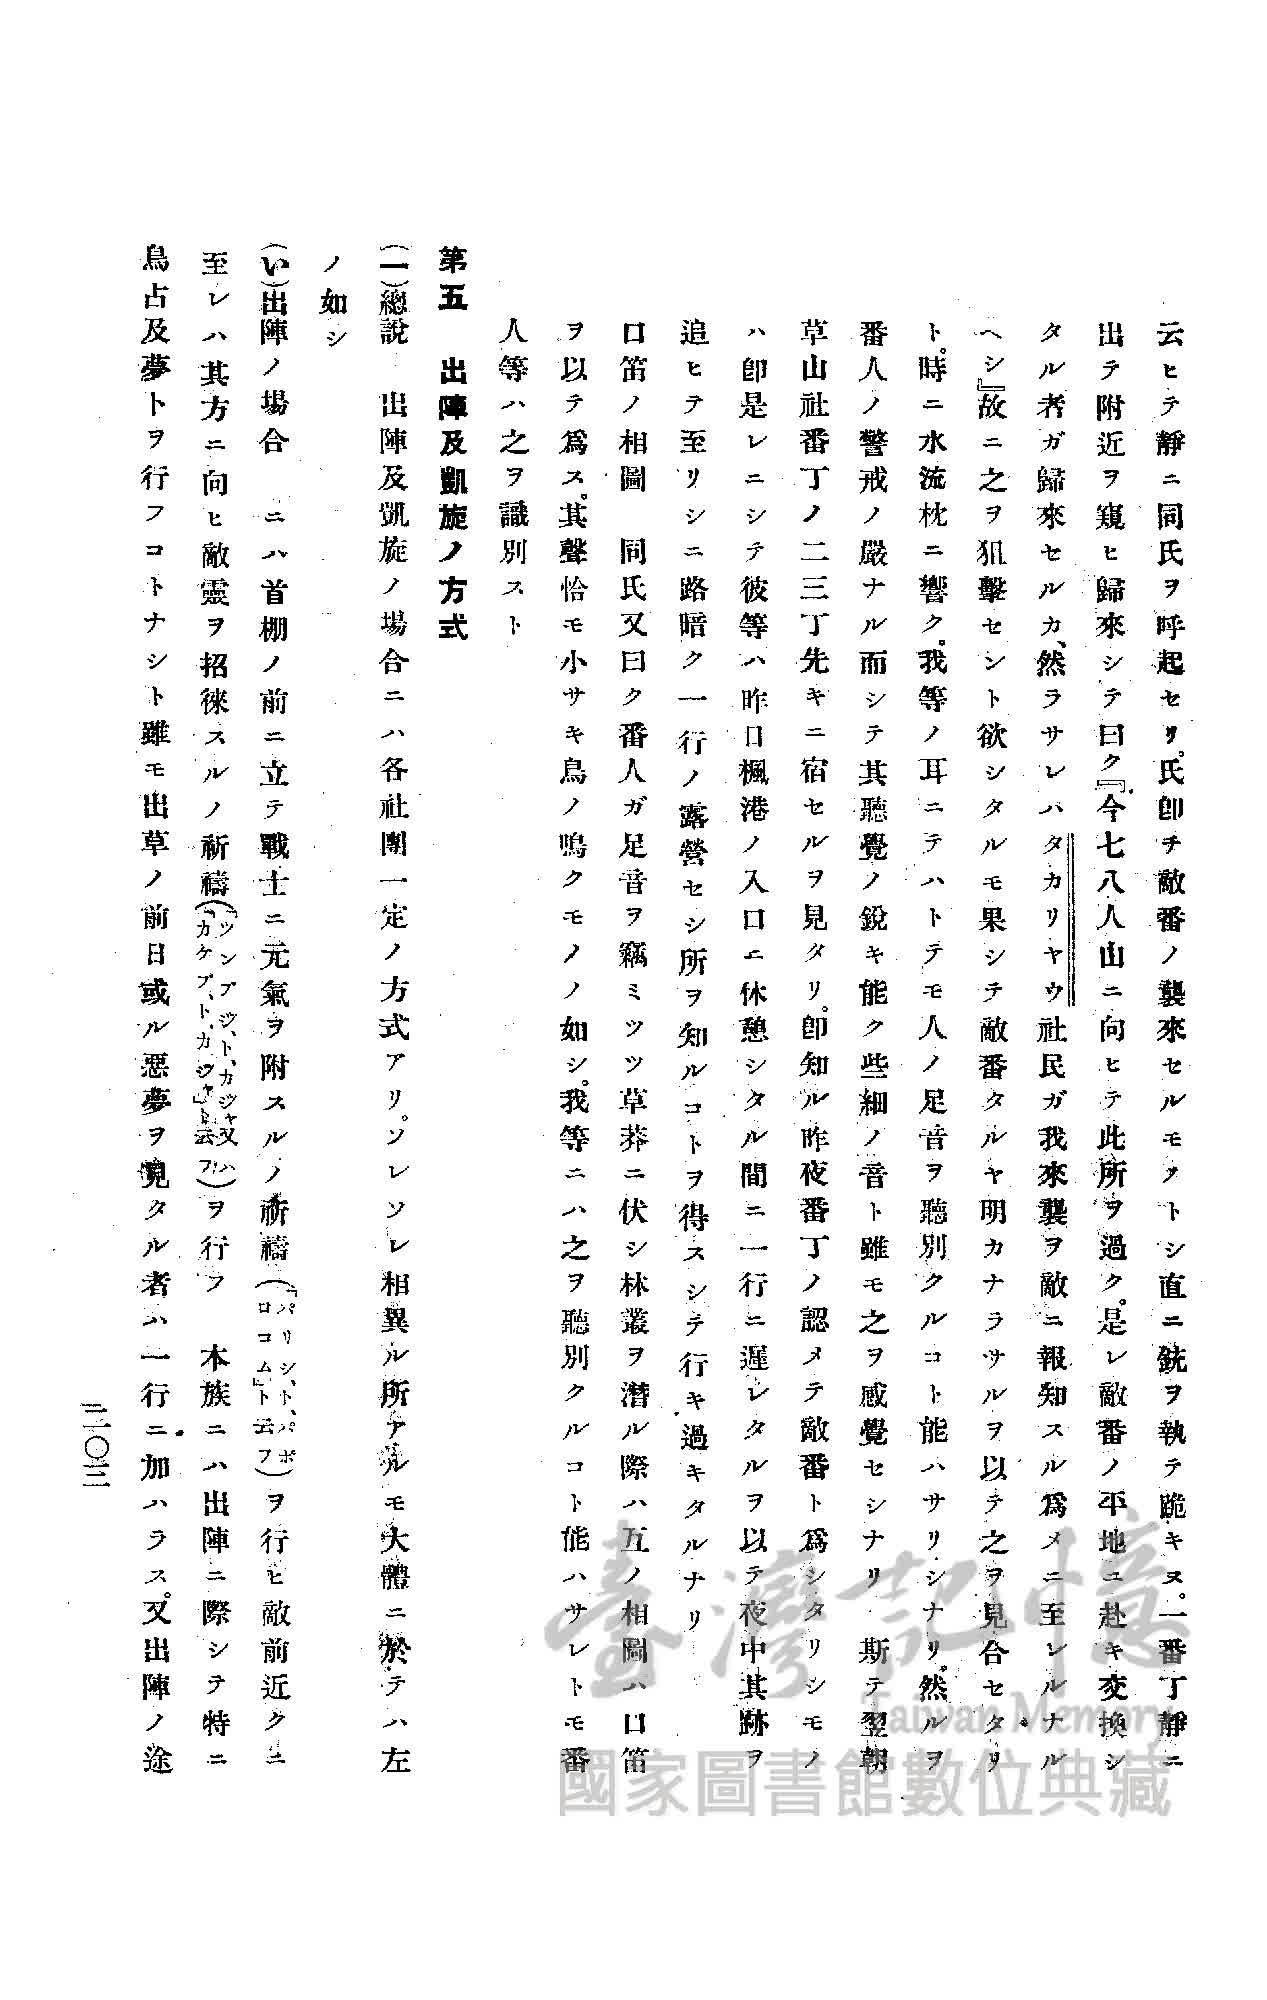 云ヒテ靜ニ同氏ヲ呼起セリ。氏卽チ敵番ノ襲來セルモノトシ直ニ銃ヲ執テ跪キヌ。一番丁靜ニ
出テ附近ヲ窺ヒ歸來シテ曰ク『今七八人山ニ向ヒテ此所ヲ過ク。是レ敵番ノ平地ニ赴キ交換シ
タル者ガ歸來セルカ、然ラサレハタカリヤウ社民ガ我來襲ヲ敵ニ報知スル爲メニ至レルナル
ヘシ』故ニ之ヲ狙擊セント欲シタルモ果シテ敵番タルヤ明カナラサルヲ以テ之ヲ見合セタリ
ト。時ニ水流枕ニ響ク。我等ノ耳ニテハトテモ人ノ足音ヲ聽別クルコト能ハサリシナリ。然ルヲ
番人ノ警戒ノ嚴ナル而シテ其聽覺ノ銳キ能ク些細ノ音ト雖モ之ヲ感覺セシナリ　斯テ翌朝
草山社番丁ノ二三丁先キニ宿セルヲ見タリ。卽知ル昨夜番丁ノ認メテ敵番ト爲シタリシモノ
ハ卽是レニシテ彼等ハ昨日楓港ノ入口ニ休憩シタル間ニ一行ニ遲レタルヲ以テ夜中其跡ヲ
追ヒテ至リシニ路暗ク一行ノ露營セシ所ヲ知ルコトヲ得スシテ行キ過キタルナリ
口笛ノ相圖　同氏又曰ク番人ガ足音ヲ竊ミツツ草莽ニ伏シ林叢ヲ潛ル際ハ互ノ相圖ハ口笛
ヲ以テ爲ス。其聲恰モ小サキ鳥ノ鳴クモノノ如シ。我等ニハ之ヲ聽別クルコト能ハサレトモ番
人等ハ之ヲ識別スト
第五　出陣及凱旋ノ方式
(一)總說　出陣及凱旋ノ場合ニハ各社團一定ノ方式アリ。ソレソレ相異ル所アルモ大體ニ於テハ左
ノ如シ
(い)出陣ノ場合　ニハ首棚ノ前ニ立テ戰士ニ元氣ヲ附スルノ祈禱(「パリシ、ト、パポロコム」ト云フ)ヲ行ヒ敵前近クニ
至レハ其方ニ向ヒ敵靈ヲ招徠スルノ祈禱(「ツンアツ、ト、カジャ又ハ「カケプ、ト、カジャ」ト云フ)ヲ行フ　本族ニハ出陣ニ際シテ特ニ
鳥占及夢トヲ行フコトナシト雖モ出草ノ前日或ル惡夢ヲ見タル者ハ一行ニ加ハラス。又出陣ノ途
二〇三
臺灣記憶
Taiwan Memory
國家圖書館數位典藏